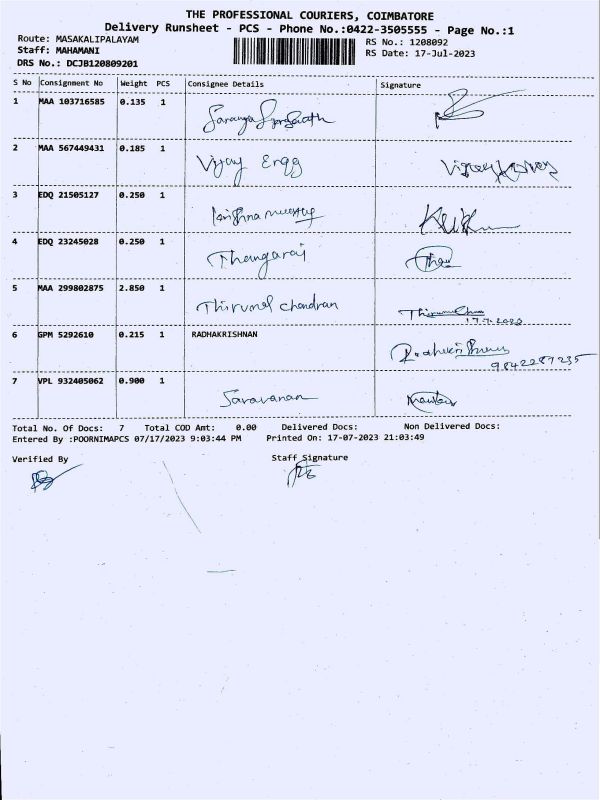 THE PROFESSIONAL COURIERS, COIMBATORE
Delivery Runsheet - PCS - Phone No.:0422-3505555 - Page No.:1
Route: MASAKALIPALAYAM RS No.: 1208092
Staff: MAHAMANI RS Date: 17-Jul-2023
DRS No.: DCJB120809201
S No Consignment No Weight PCS Consignee Details Signature
1 MAA 103716585 0.135 1
2 MAA 567449431 0.185 1 Vijay
3 EDQ 21505127 0.250 1 Krishna
4 EDQ 23245028 0.250 1 Thangaraj
5 MAA 299802875 2.850 1 Chandran
17.7.2023
6 GPM 5292610 0.215 1 RADHAKRISHNAN
9842287235
7 VPL 932405062 0.900 1 Saravanan
Total No. Of Docs: 7 Total COD Amt: 0.00 Delivered Docs: Non Delivered Docs:
Entered By :POORNIMAPCS 07/17/2023 9:03:44 PM Printed On: 17-07-2023 21:03:49
Verified By Staff Signature